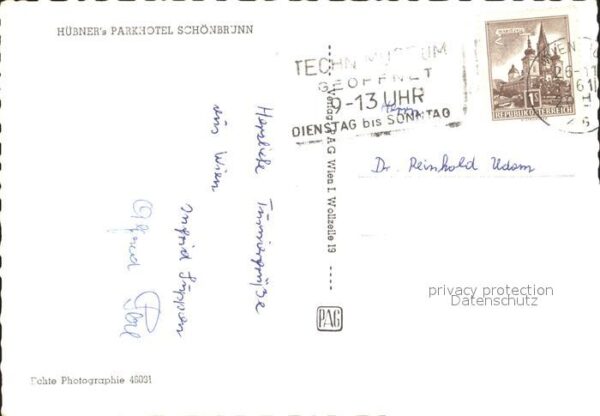 HÜBNER's PARKHOTEL SCHÖNBRUNN
TECHN. MUSEUM
GEÖFFNET
9-13 UHR
DIENSTAG bis SONNTAG
MARIAZELL
1S
REPUBLIK ÖSTERREICH
WIEN
Herrn
Dr. Reinhold Udom
Herzliche Turniergrüße
aus Wien
Ingrid Lüppen
Alfred
Verlag PAG Wien I. Wollzeile 19
PAG
privacy protection
Datenschutz
Echte Photographie 46031